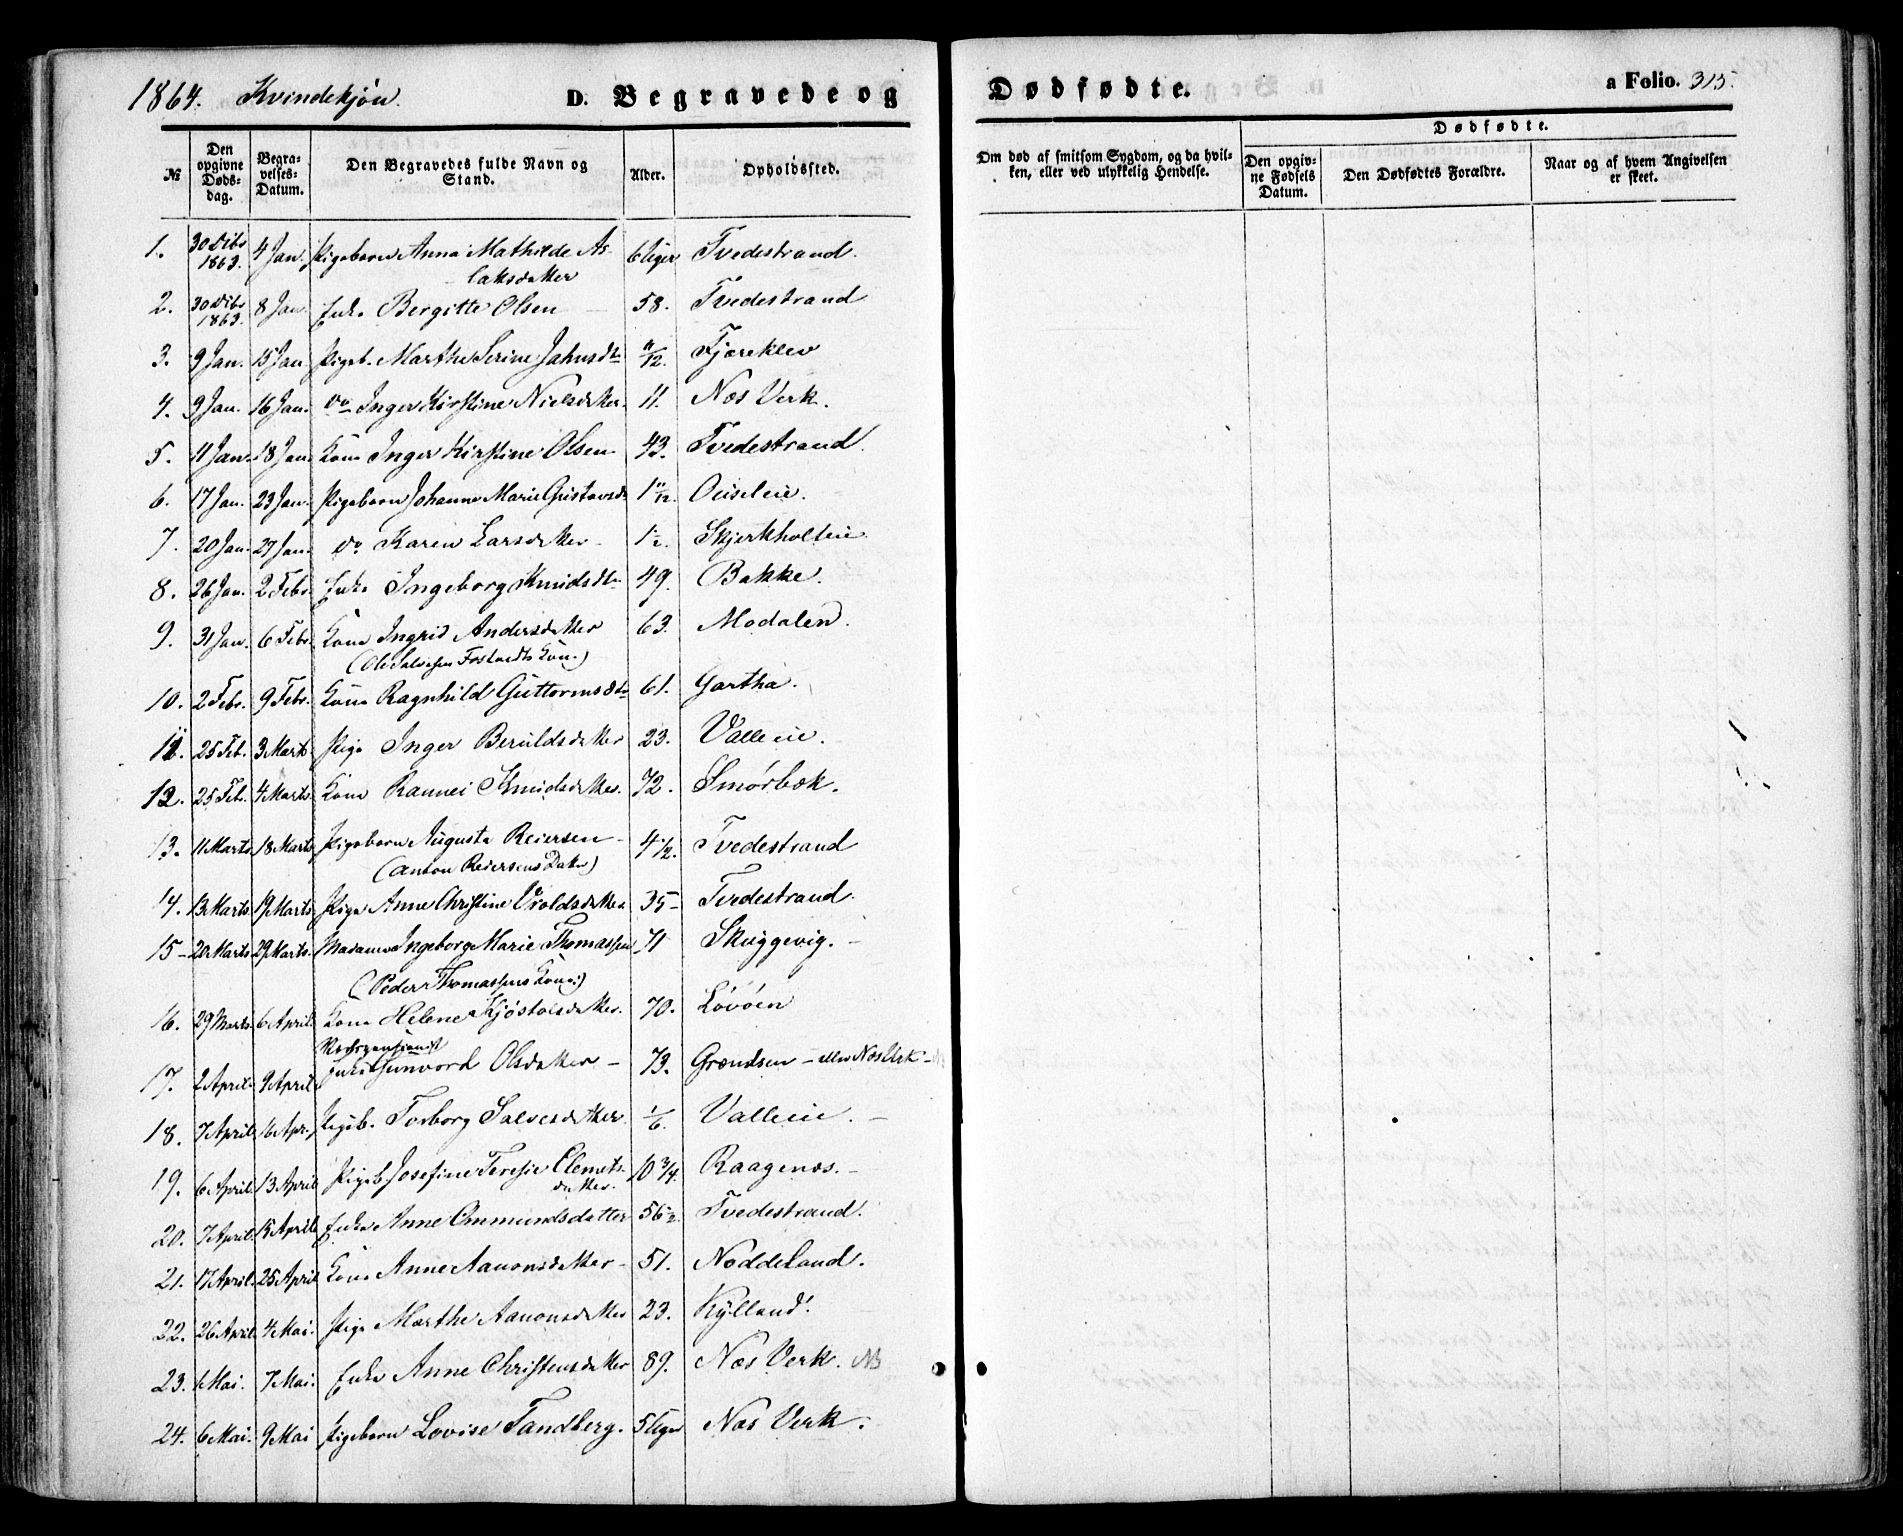 1864. Kvindekjøn. D. Begravede og Dødfødte. a Folio. 315.
Dødfødte.
№ Den opgivne Døds-dag. Begra-velses-Datum. Den Begravedes fulde Navn og Stand. Alder. Opholdssted. Om død af smitsom Sygdom, og da hvil-ken, eller ved ulykkelig Hendelse. Den opgiv-ne Fødsels Datum. Den Dødfødtes Forældre. Naar og af hvem Angivelsen er skeet.
1. 30 Dibr 1863. 4 Jan. Pigebarn Anna Mathilde As-
laksdatter 6 Uger Tvedestrand.
2. 30 Dibr 1863. 8 Jan. Enke Bergitte Olsen 58. Tvedestrand
3. 9 Jan. 15 Jan. Pigeb. Marthe Serine Jahnsdtr 11/12. Fjæreklev
4. 9 Jan. 16 Jan. do Inger Kirstine Nielsdatter. 11. Næs Verk.
5. 11 Jan. 18 Jan. Kone Inger Kirstine Olsen 43. Tvedestrand.
6. 17 Jan. 23 Jan. Pigebarn Johanne Marie Gustavsd. 1 11/12. Ouseleie.
7. 20 Jan. 27 Jan. do Karen Larsdatter 1½. Skjerkholteie
8. 26 Jan. 2 Febr. Enke Ingeborg Knudsdtr 49. Bakke.
9. 31 Jan. 6 Febr. Kone Ingrid Andersdatter 63. Modalen.
(Ole Salvesen Fostvedts Kone)
10. 2 Febr. 9 Febr. Kone Ragnhild Guttormsdtr 61. Gartha.
11. 25 Feb. 3 Marts Pige Inger Beruldsdatter 23. Valleeie.
12. 25 Feb. 4 Marts. Kone Rannei Knudsdatter. 72. Smørbæk.
13. 11 Marts 18 Marts Pigebarn Augusta Reiersen 4½. Tvedestrand
(Anton Reiersens Datter)
14. 13 Marts 19 Marts Pige Anne Christine Oroldsdatter 35 Tvedestrand.
15 20 Marts 29 Marts. Madame Ingeborg Marie Thomassen 71 Skuggevig.
(Peder Thomassens Kone)
16. 29 Marts. 6 April. Kone Helene Kjøstolsdatter. 70. Løvøen
17. 2 April. 9 April Enke Gunvord Olsdatter 73. Grændsen - eller Næs Verk
18. 7 April. 16 Apr. Pigeb. Torborg Salvesdatter. 1/6. Valleeie.
19. 6 April. 13 April Pigeb. Josefine Teresie Clemets-
datter. 10 3/4. Raagenæs.
20. 7 April. 15 April Enke Anne Ommundsdatter 56½. Tvedestrand.
21. 17 April. 25 April Kone Anne Aanonsdatter 51. Noddeland.
22. 26 April. 4 Mai. Pige Marthe Aanonsdatter 23. Kylland.
23. 1 Mai. 7 Mai. Enke Anne Christensdatter 89. Næs Verk. NB
24. 6 Mai. 9 Mai Pigebarn Lovise Tandberg. 5 Uger Næs Verk.